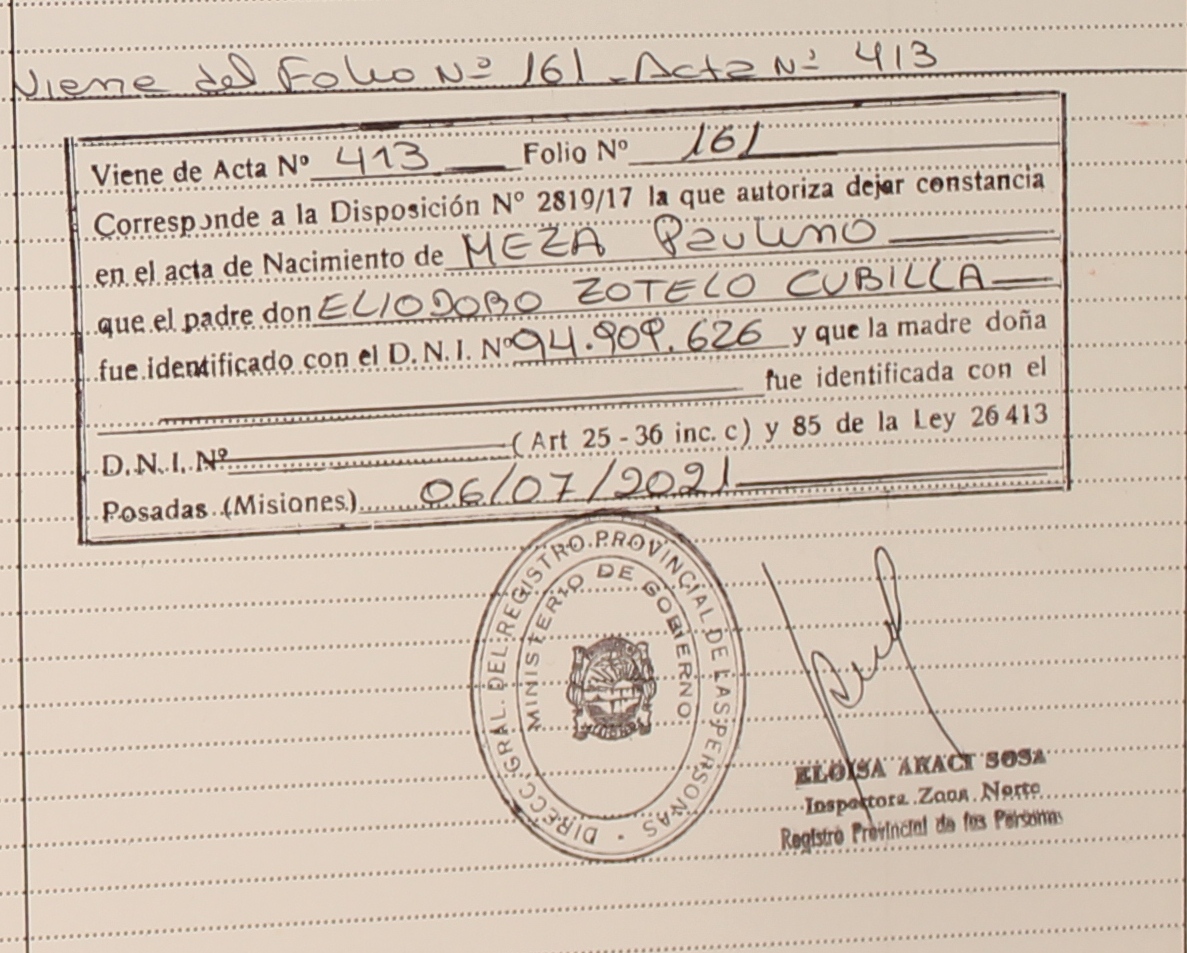 Viene del Folio Nº 161 - Acta Nº 413
Viene de Acta Nº 413 Folio Nº 161
Corresponde a la Disposición Nº 2819/17 la que autoriza dejar constancia
en el acta de Nacimiento de MEZA Paulino
que el padre don ELIODORO ZOTELO CUBILLA
fue identificado con el D.N.I. Nº 94.909.626 y que la madre doña
fue identificada con el
D.N.I. Nº (Art 25 - 36 inc. c) y 85 de la Ley 26413
Posadas (Misiones) 06/07/2021
DIRECC. GRAL. DEL REGISTRO PROVINCIAL DE LAS PERSONAS
MINISTERIO DE GOBIERNO
ELOISA ARACI SOSA
Inspectora Zona Norte
Registro Provincial de las Personas